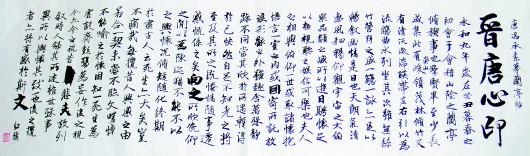 唐馮承素摹蘭亭帖
晉唐心印
永和九年歲在癸丑暮春之
初會于會稽山陰之蘭亭
脩稧事也羣賢畢至少長
咸集此地有崇山峻領茂林脩竹又
有清流激湍暎帶左右引以為
流觴曲水列坐其次雖無絲
竹管弦之盛一觴一詠亦足以
暢敘幽情是日也天朗氣清
惠風和暢仰觀宇宙之大俯
察品類之盛所以遊目騁懷足
以極視聽之娛信可樂也夫人
之相與俯仰一世或取諸懷抱
悟言一室之內或因寄所託放
浪形骸之外雖趣舍萬殊靜躁
不同當其欣於所遇暫得
於己快然自足不知老之將
至及其所之既惓情隨事遷
感慨係之矣向之所欣俛仰
之間以為陳跡猶不能不以
之興懷況脩短隨化終期
於盡古人云死生亦大矣豈
不痛哉每攬昔人興感之由
若合一契未嘗不臨文嗟悼
不能喻之於懷固知一死生為
虛誕齊彭殤為妄作後之視
今亦由今之視昔悲夫故列
敘時人錄其所述雖世殊事
異所以興懷其致一也後之攬
者亦將有感於斯文